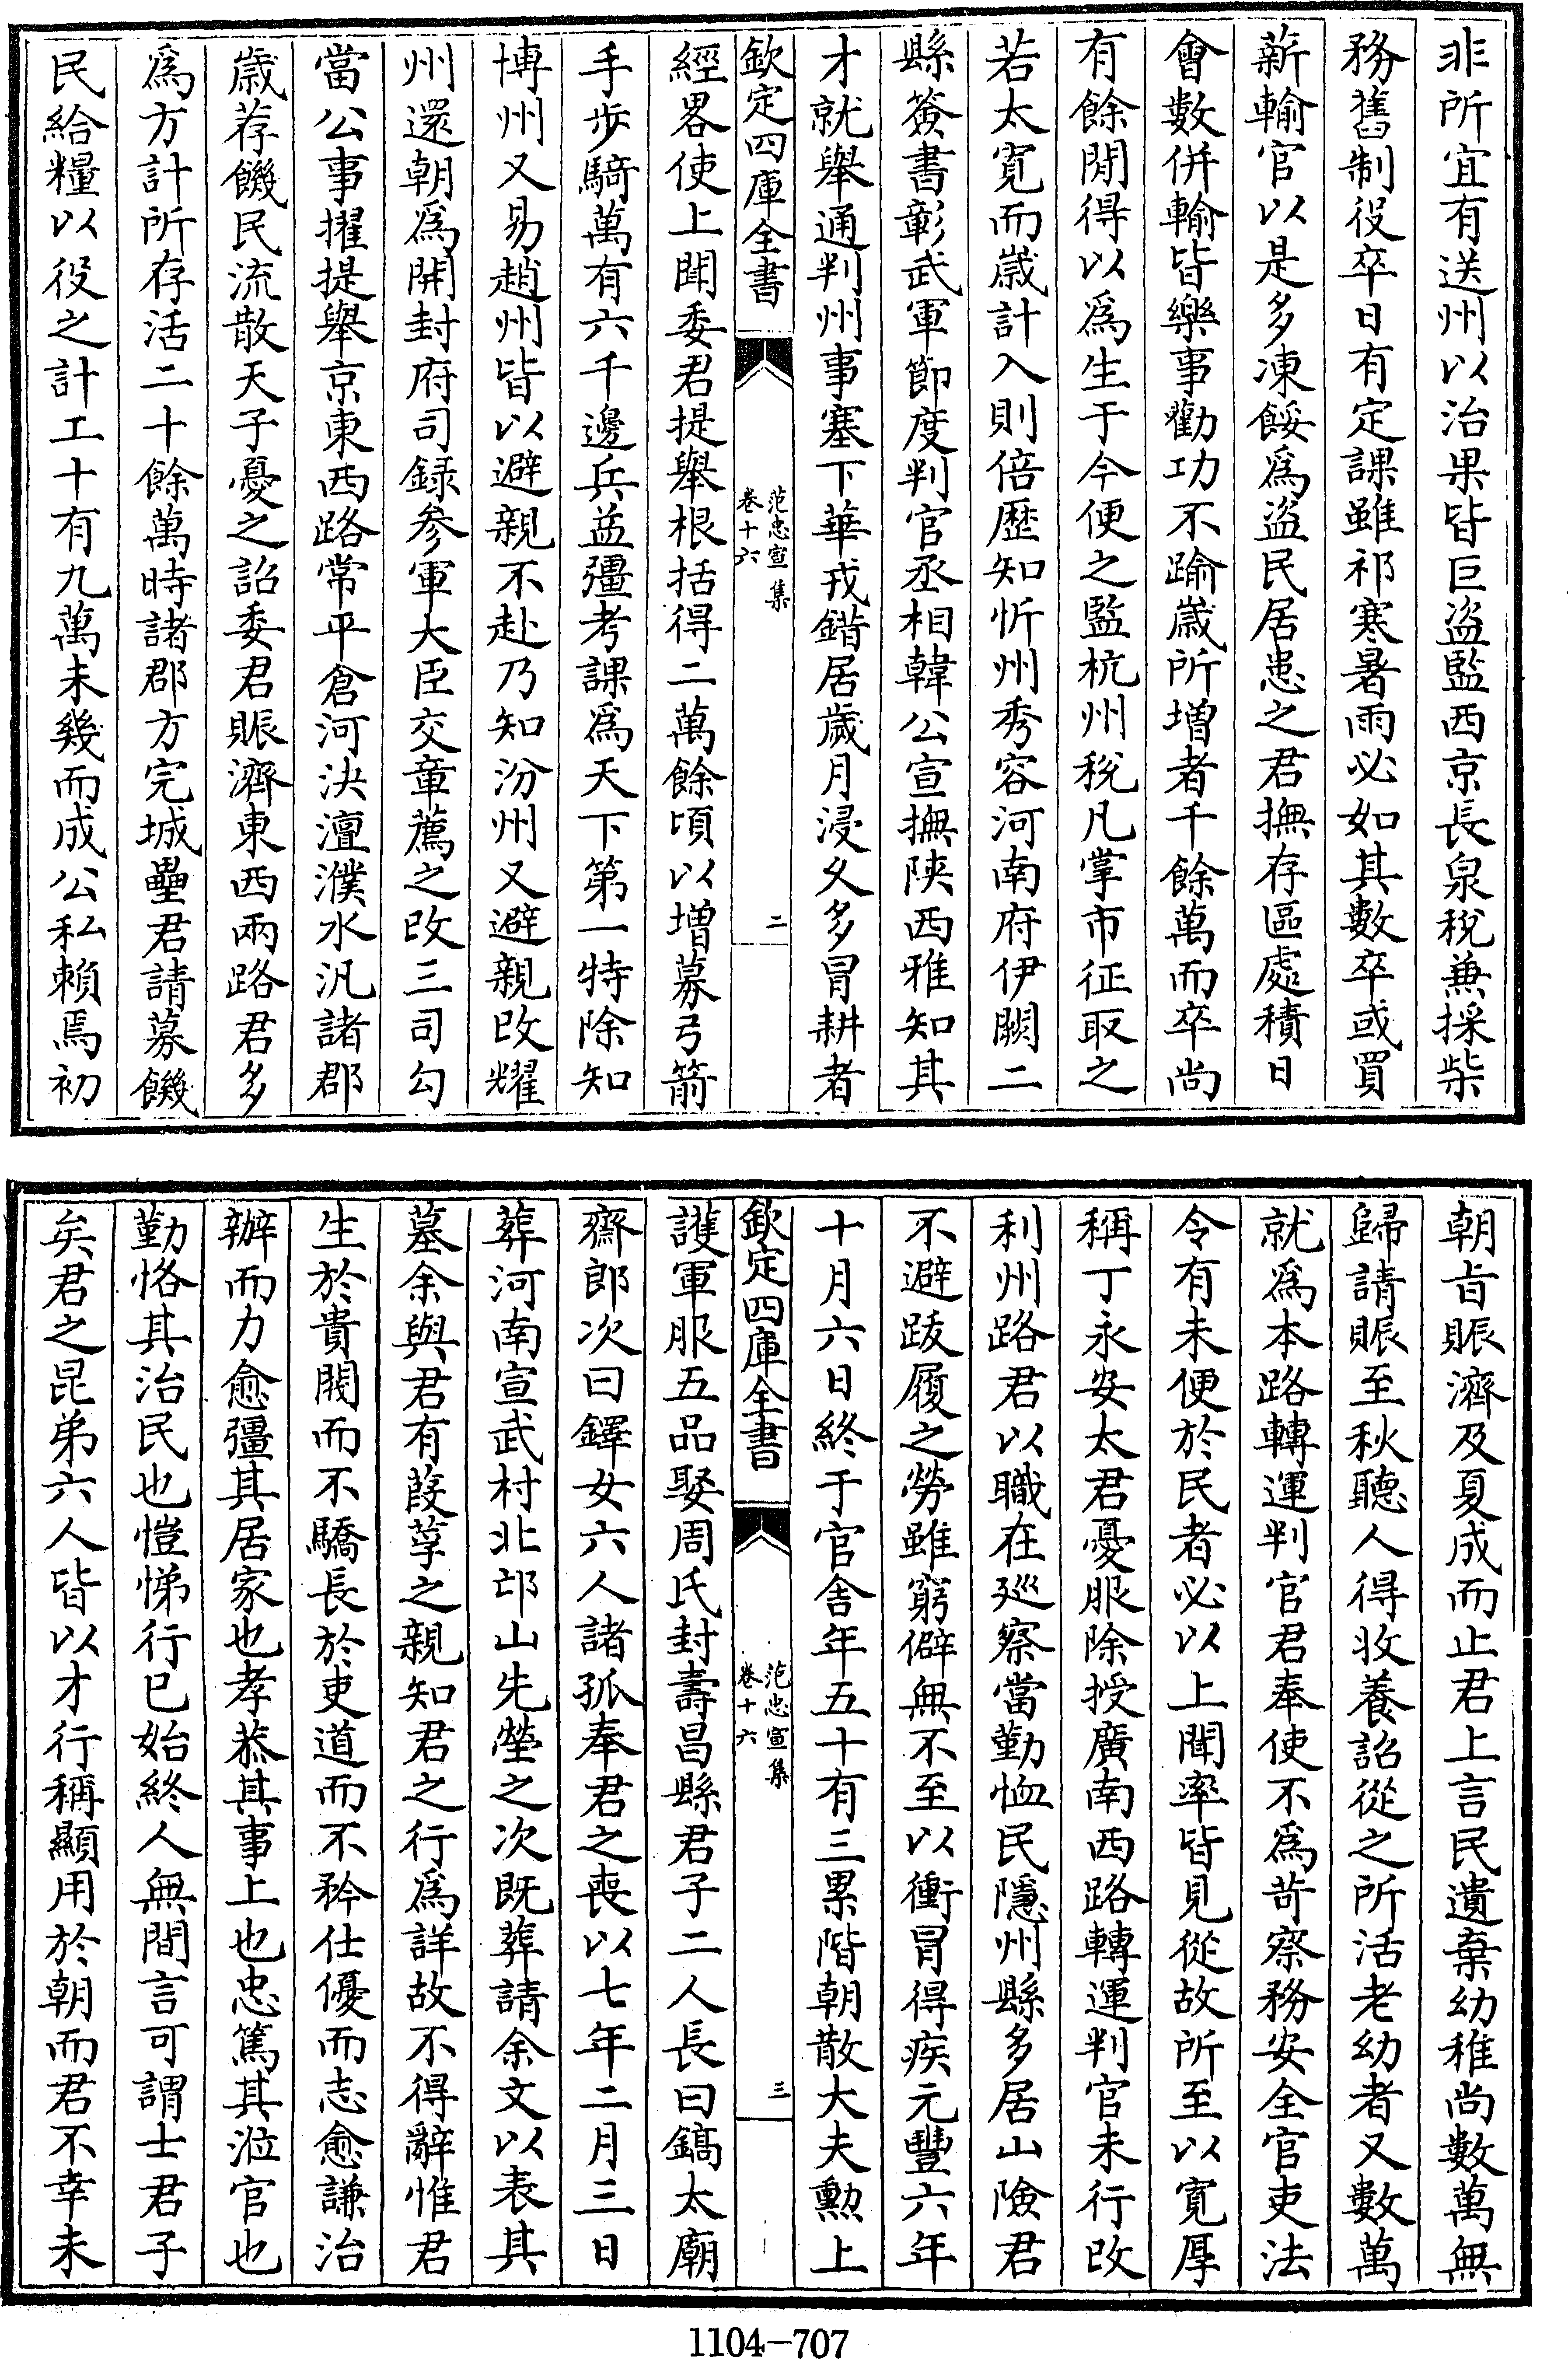 非所宜有送州以治果皆巨盜監西京長泉稅兼採柴
務舊制役卒日有定課雖祁寒暑雨必如其數卒或買
薪輸官以是多凍餒爲盜民居患之君撫存區處積日
會數併輸皆樂事勸功不踰歲所增者千餘萬而卒尚
有餘閒得以爲生于今便之監杭州稅凡掌市征取之
若太寛而歲計入則倍歴知忻州秀容河南府伊闕二
縣簽書彰武軍節度判官丞相韓公宣撫陝西雅知其
才就舉通判州事塞下華戎錯居歲月浸久多冒耕者
欽定四庫全書
范忠宣集
卷十六
二
經畧使上聞委君提舉根括得二萬餘頃以增募弓箭
手步騎萬有六千邊兵益彊考課爲天下第一特除知
博州又易趙州皆以避親不赴乃知汾州又避親改耀
州還朝爲開封府司録參軍大臣交章薦之改三司勾
當公事擢提舉京東西路常平倉河決澶濮水汎諸郡
歲荐饑民流散天子憂之詔委君賑濟東西兩路君多
爲方計所存活二十餘萬時諸郡方完城壘君請募饑
民給糧以役之計工十有九萬未幾而成公私賴焉初
朝㫖賑濟及夏成而止君上言民遺棄幼稚尚數萬無
歸請賑至秋聽人得收養詔從之所活老幼者又數萬
就爲本路轉運判官君奉使不爲苛察務安全官吏法
令有未便於民者必以上聞率皆見從故所至以寛厚
稱丁永安太君憂服除授廣南西路轉運判官未行改
利州路君以職在廵察當勤恤民隱州縣多居山險君
不避跋履之勞雖窮僻無不至以衝冒得疾元豐六年
十月六日終于官舍年五十有三累階朝散大夫勲上
欽定四庫全書
范忠宣集
卷十六
三
護軍服五品娶周氏封壽昌縣君子二人長曰鎬太廟
齋郎次曰鐸女六人諸孤奉君之喪以七年二月三日
葬河南宣武村北邙山先塋之次既葬請余文以表其
墓余與君有葭莩之親知君之行爲詳故不得辭惟君
生於貴閥而不驕長於吏道而不矜仕優而志愈謙治
辦而力愈彊其居家也孝恭其事上也忠篤其涖官也
勤恪其治民也愷悌行已始終人無間言可謂士君子
矣君之昆弟六人皆以才行稱顯用於朝而君不幸未
1104-707